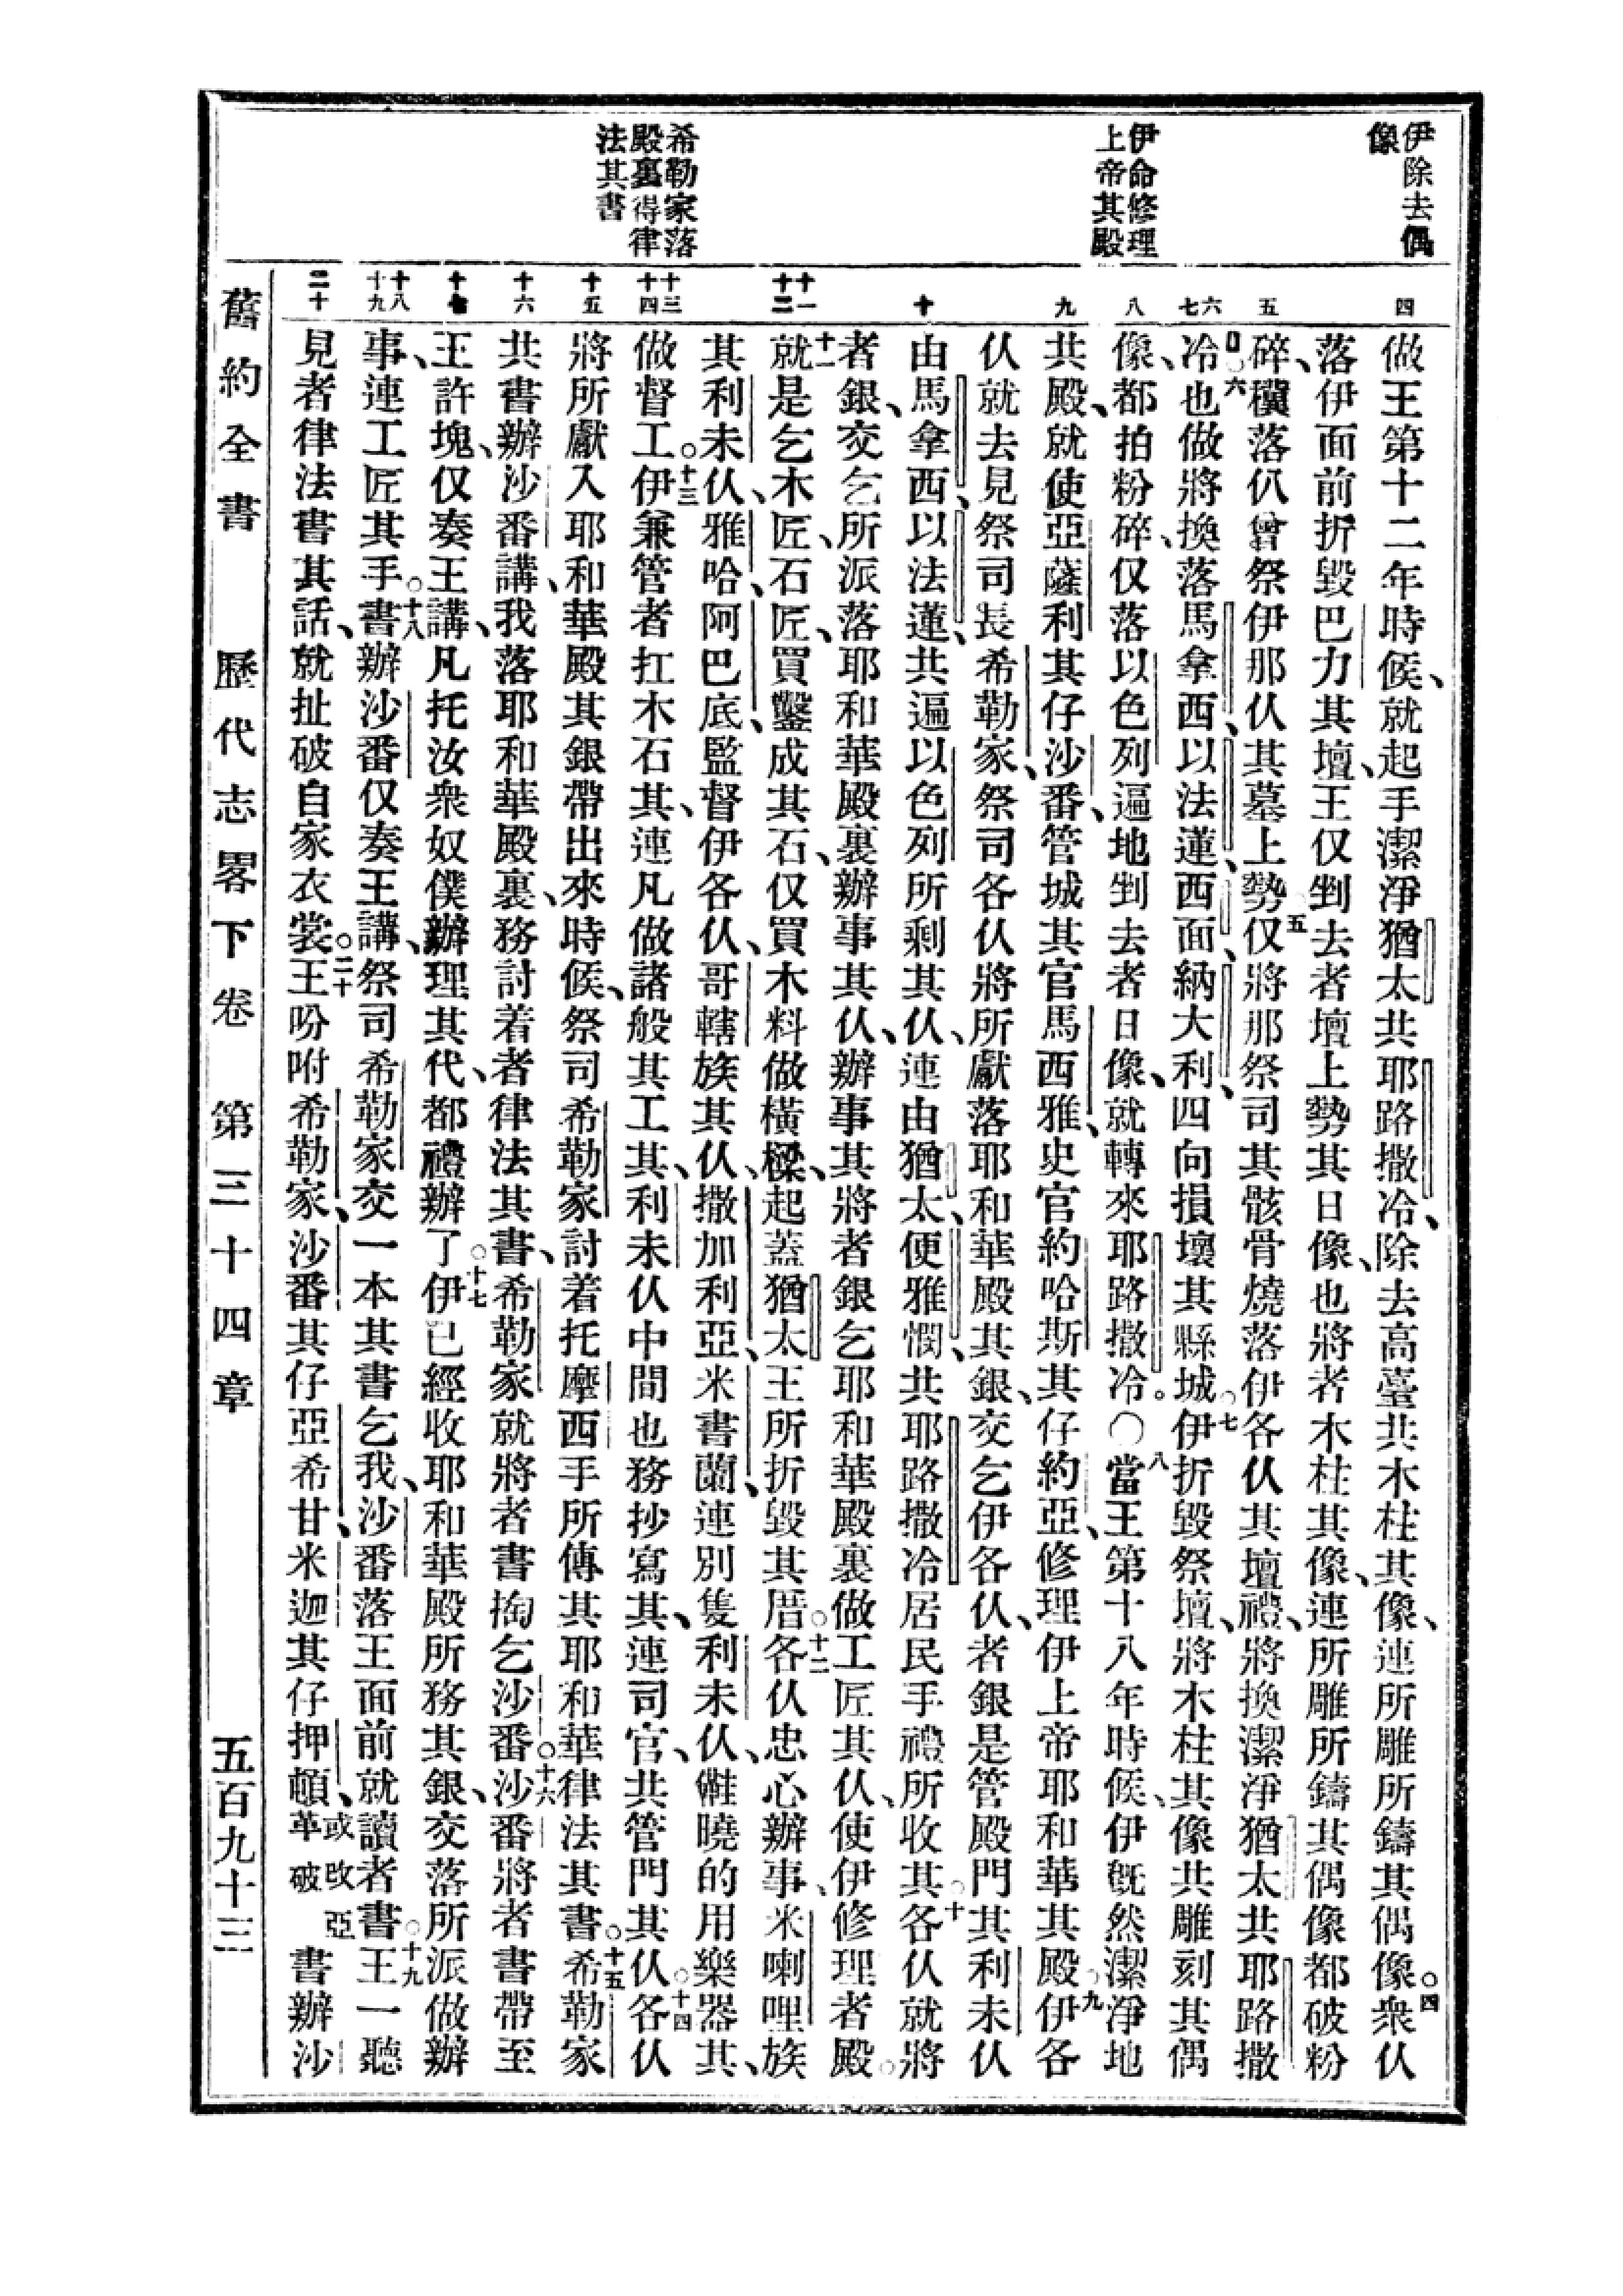 伊除去偶
像
伊命修理
上帝其殿
希勒家落
殿裏得律
法其書
四
五
六
七
八
九
十
十一
十二
十三
十四
十五
十六
十七
十八
十九
二十
做王第十二年時候、就起手潔淨猶太共耶路撒冷、除去高臺共木柱其像、連所雕所鑄其偶像。四衆仈
落伊面前折毀巴力其壇、王仅剉去者壇上勢其日像、也將者木柱其像、連所雕所鑄其偶像都破粉
碎、攧落仈曾祭伊那仈其墓上勢五仅將那祭司其骸骨燒落伊各仈其壇禮、將換潔淨猶太共耶路撒
冷○六也做將換落馬拿西、以法蓮、西面、納大利、四向損壞其縣城○七伊折毀祭壇、將木柱其像共雕刻其偶
像、都拍粉碎、仅落以色列遍地剉去者日像、就轉來耶路撒冷。○八當王第十八年時候、伊旣然潔淨地
共殿、就使亞薩利其仔沙番、管城其官馬西雅、史官約哈斯其仔約亞、修理伊上帝耶和華其殿○九伊各
仈就去見祭司長希勒家、祭司各仈將所獻落耶和華殿其銀、交乞伊各仈、者銀是管殿門其利未仈
由馬拿西、以法蓮、共遍以色列所剩其仈、連由猶太、便雅憫、共耶路撒冷居民手禮所收其○十各仈就將
者銀、交乞所派落耶和華殿裏辦事其仈、辦事其將者銀乞耶和華殿裏做工匠其仈、使伊修理者殿○
十一就是乞木匠、石匠、買鑿成其石、仅買木料做橫樑、起蓋猶太王所折毀其厝○十二各仈忠心辦事、米喇哩族
其利未仈、雅哈、阿巴底、監督伊各仈、哥轄族其仈、撒加利亞、米書蘭、連別隻利未仈、儺曉的用樂器其、
做督工。十三伊兼管者扛木石其、連凡做諸般其工其、利未仈中間也務抄寫其、連司官、共管門其仈○十四各仈
將所獻入耶和華殿其銀帶出來時候、祭司希勒家討着托摩西手所傳其耶和華律法其書。十五希勒家
共書辦沙番講、我落耶和華殿裏、務討着者律法其書、希勒家就將者書掏乞沙番。十六沙番將者書帶至
王許塊、仅奏王講、凡托汝衆奴僕辦理其代、都禮辦了○十七伊已經收耶和華殿所務其銀、交落所派做辦
事、連工匠其手。十八書辦沙番仅奏王講、祭司希勒家交一本其書乞我、沙番落王面前就讀者書○十九王一聽
見者律法書其話、就扯破自家衣裳。二十王吩咐希勒家、沙番其仔亞希甘、米迦其仔押頓、或改亞革破書辦沙
舊約全書　歷代志畧下卷　第三十四章　五百九十三